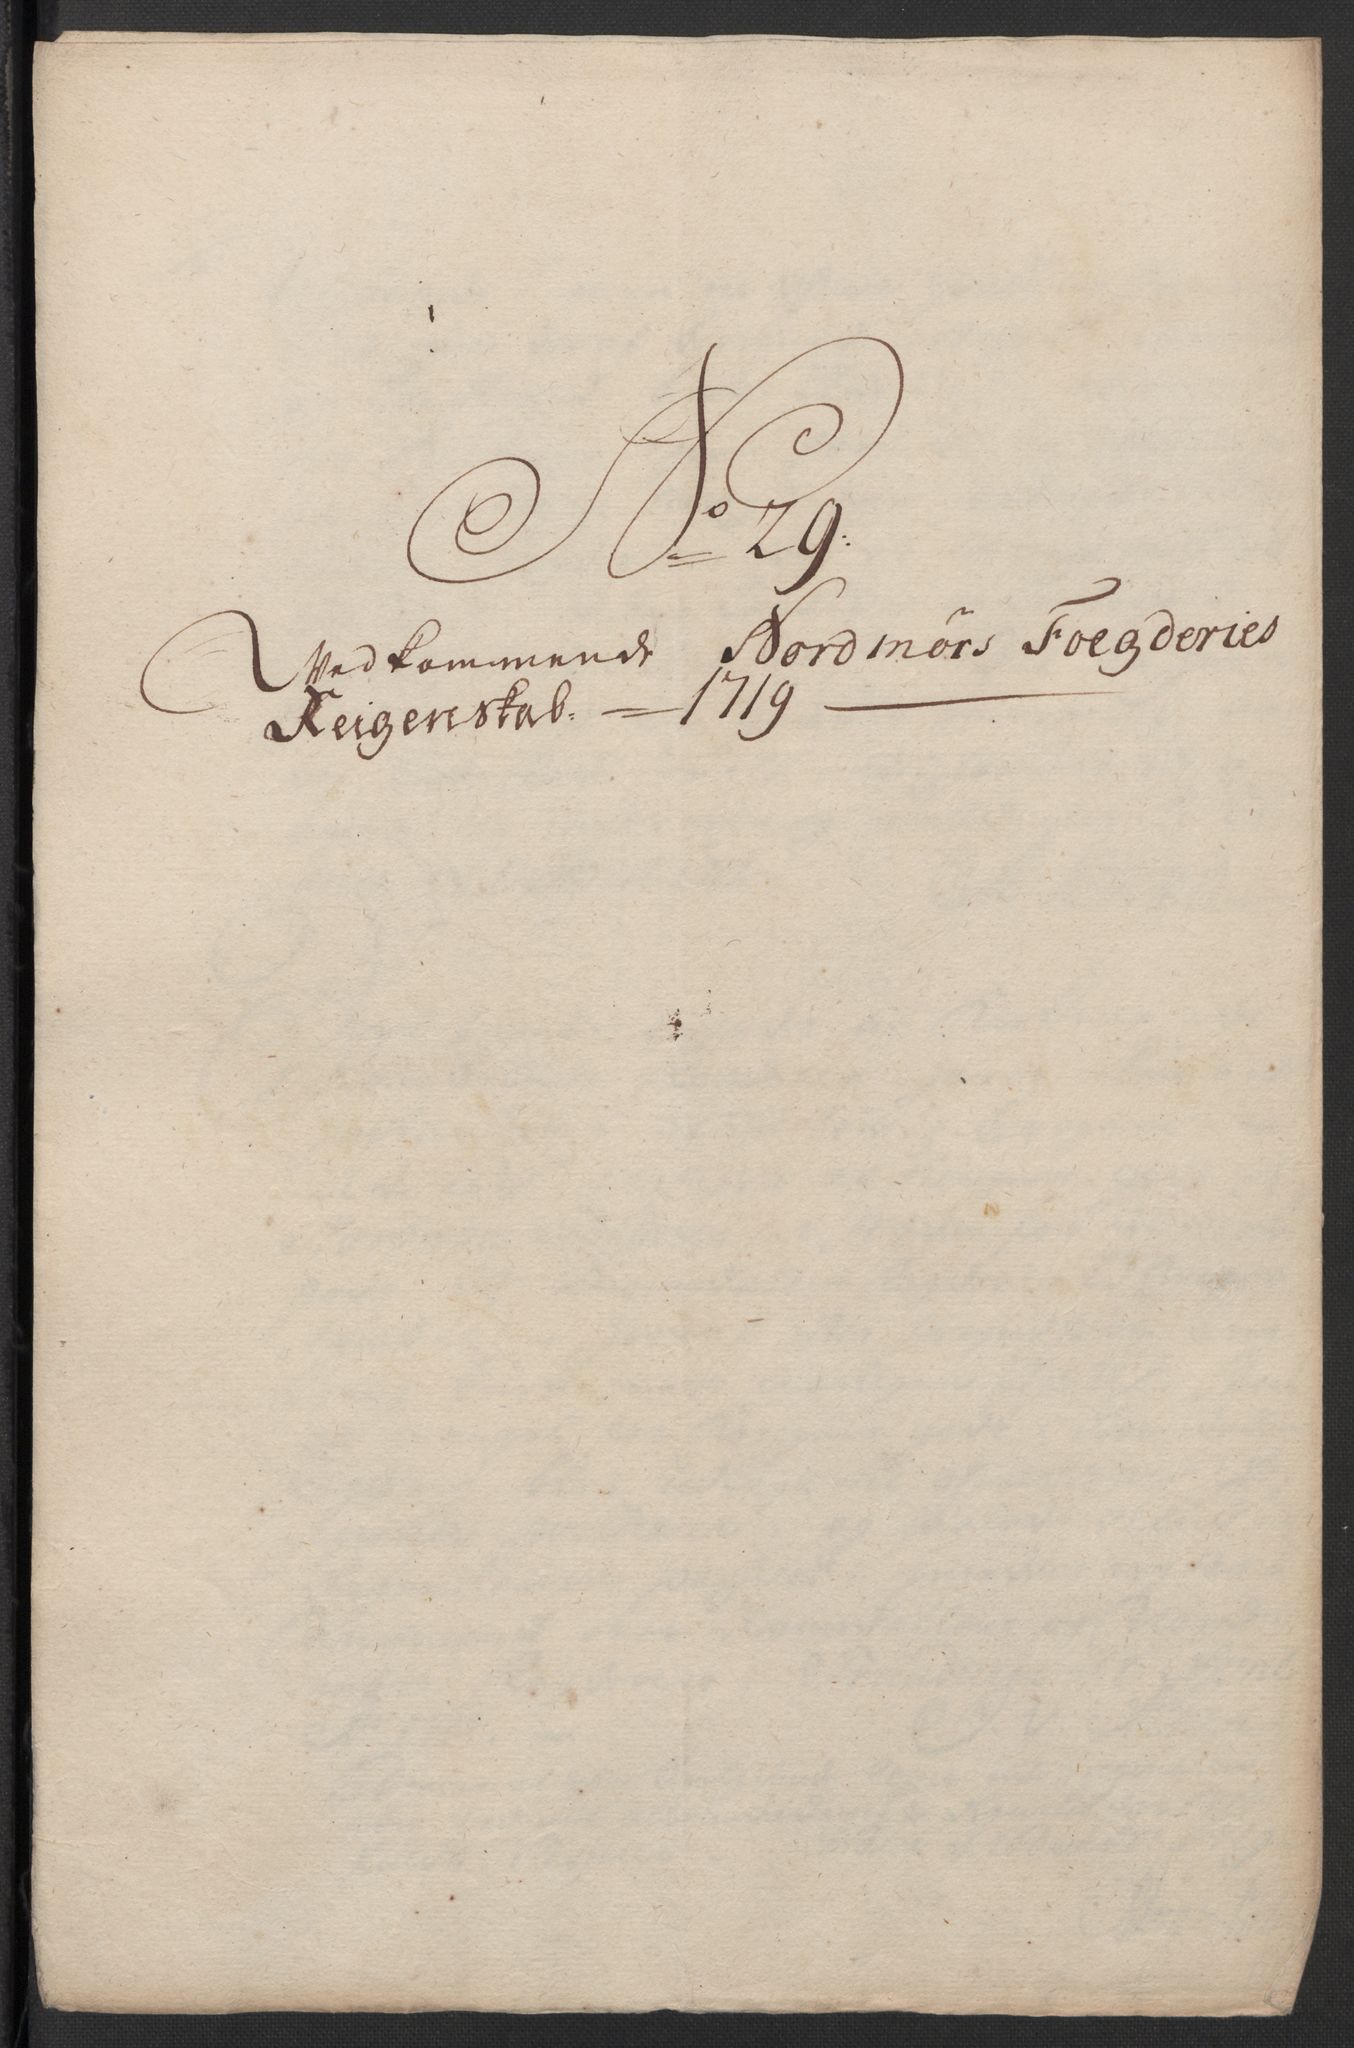 No 29:
Vedkommende Nordmörs Foegderies
Reigenskab. — 1719 —